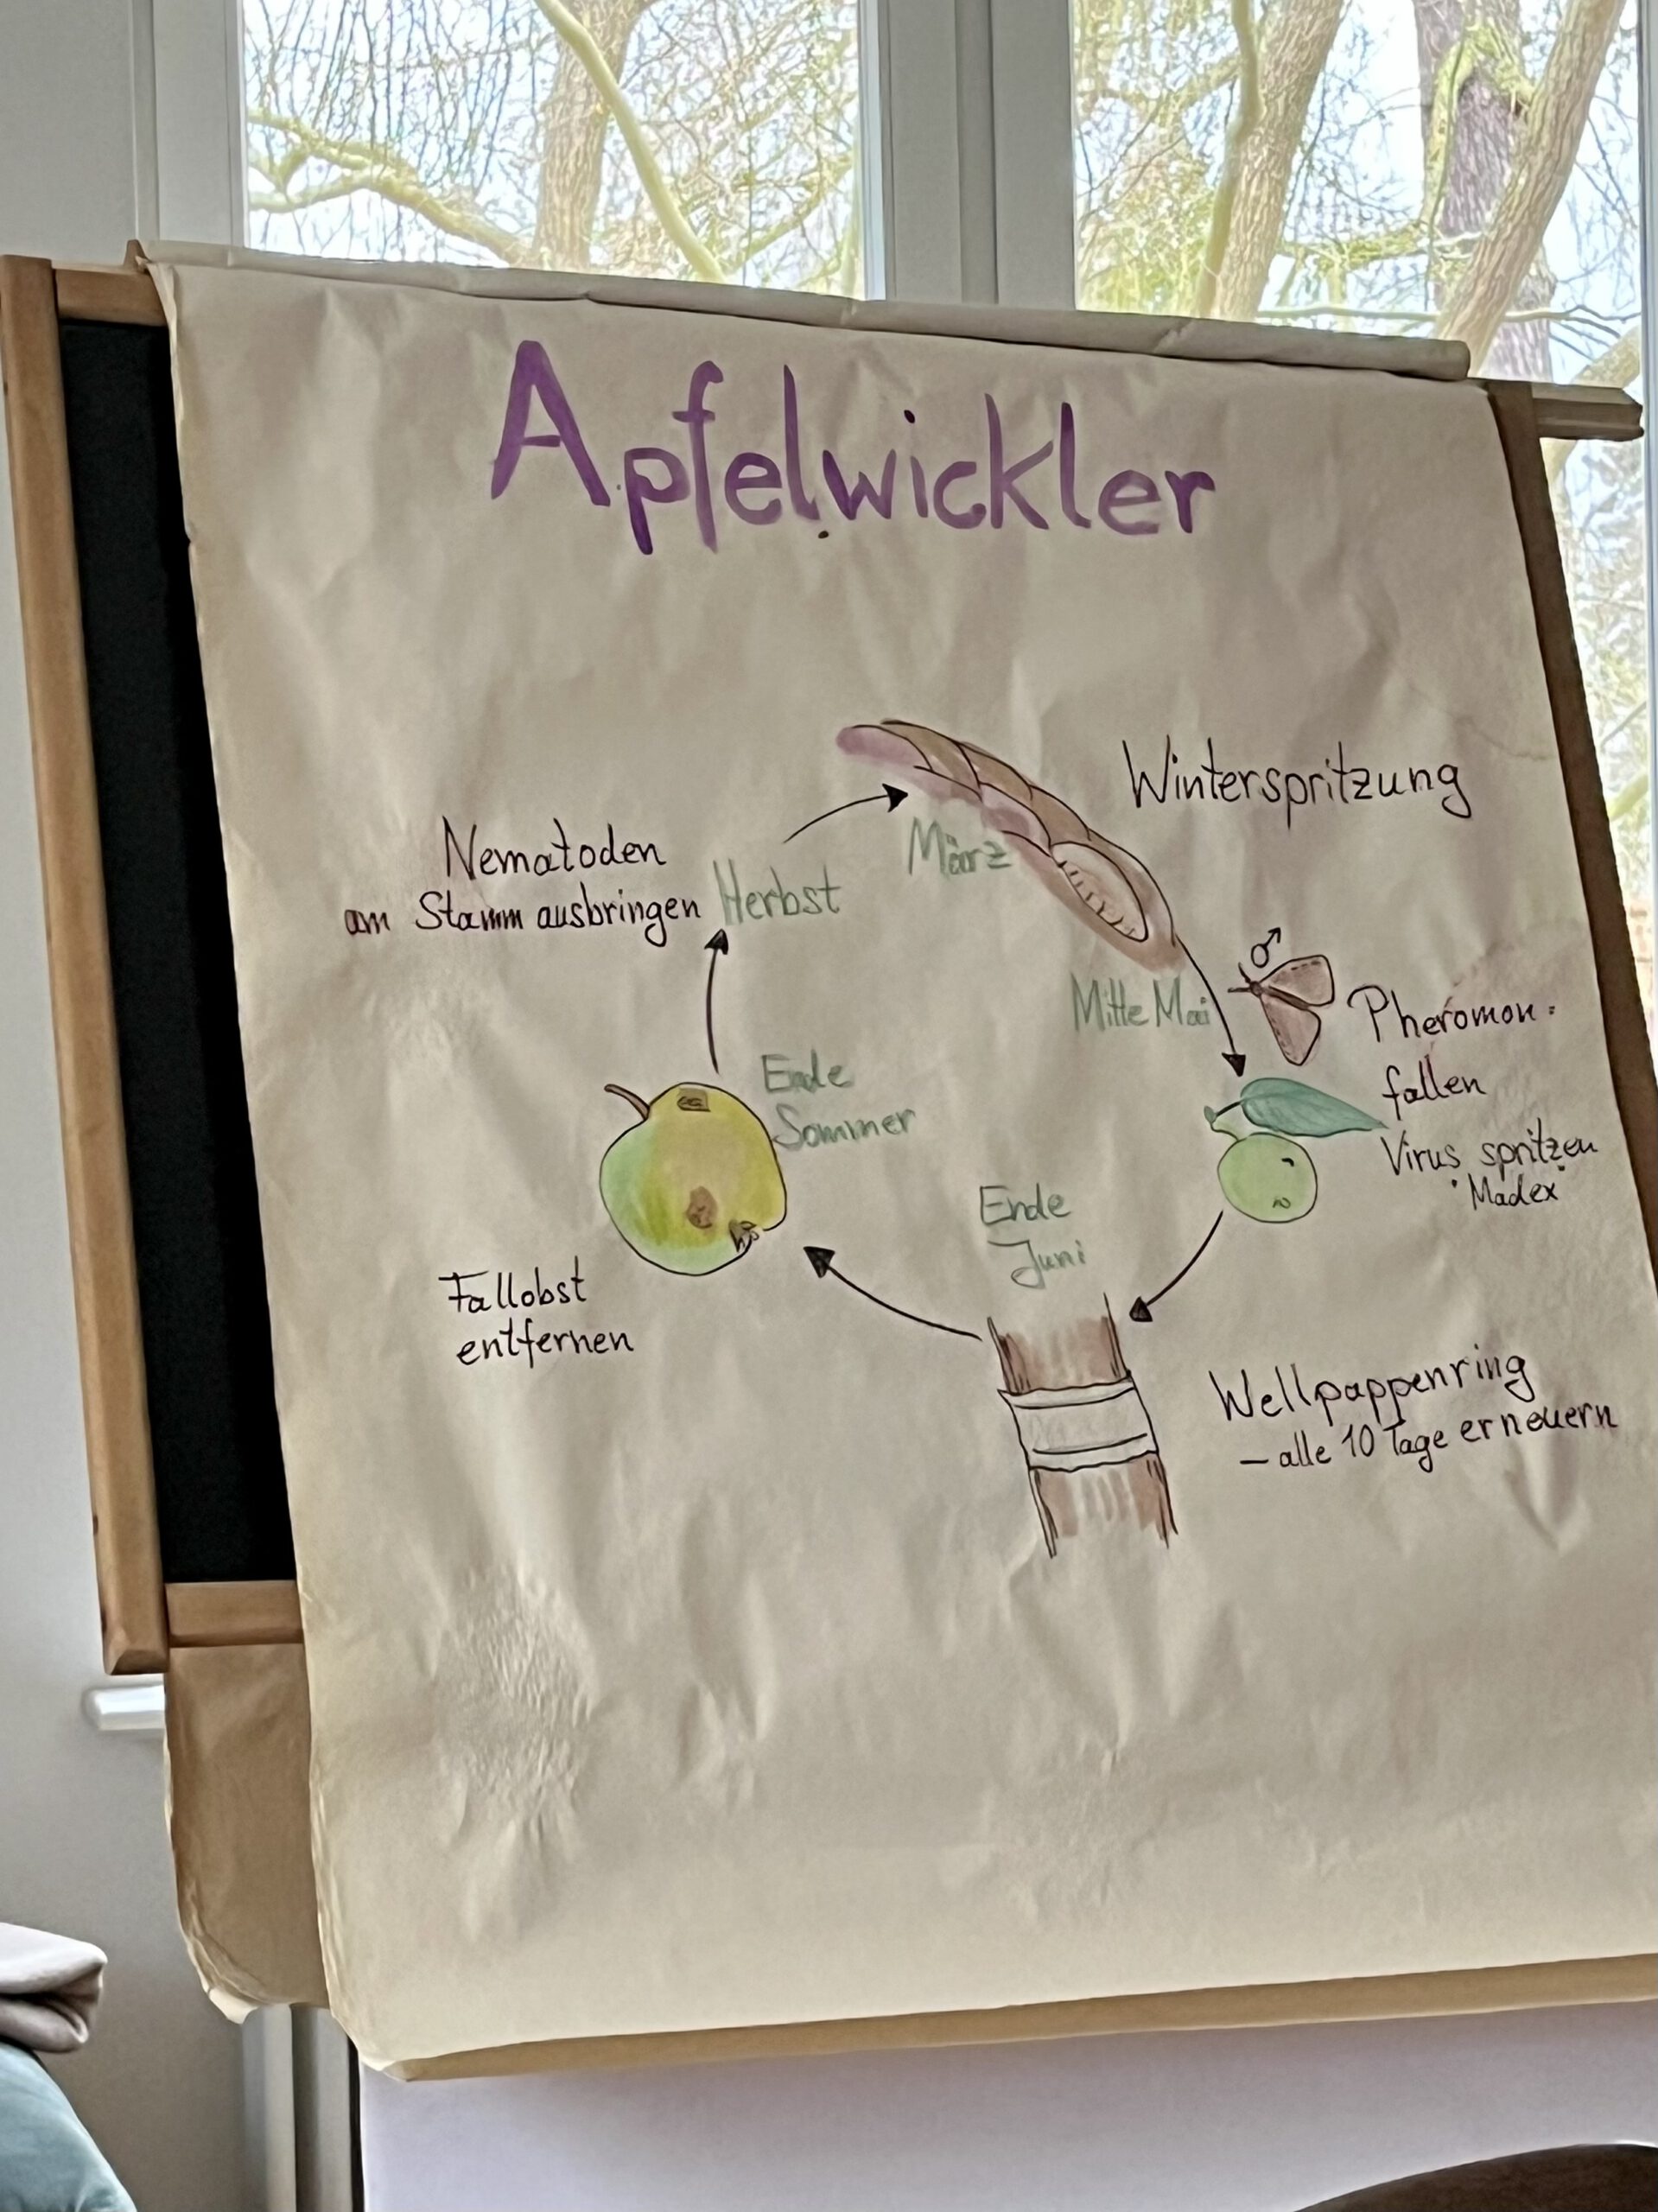 Apfelwickler
Winterspritzung
März
Mitte Mai
♂
Pheromon-
fallen
Virus spritzen
"Madex"
Ende
Juni
Wellpappenring
– alle 10 Tage erneuern
Ende
Sommer
Fallobst
entfernen
Herbst
Nematoden
am Stamm ausbringen